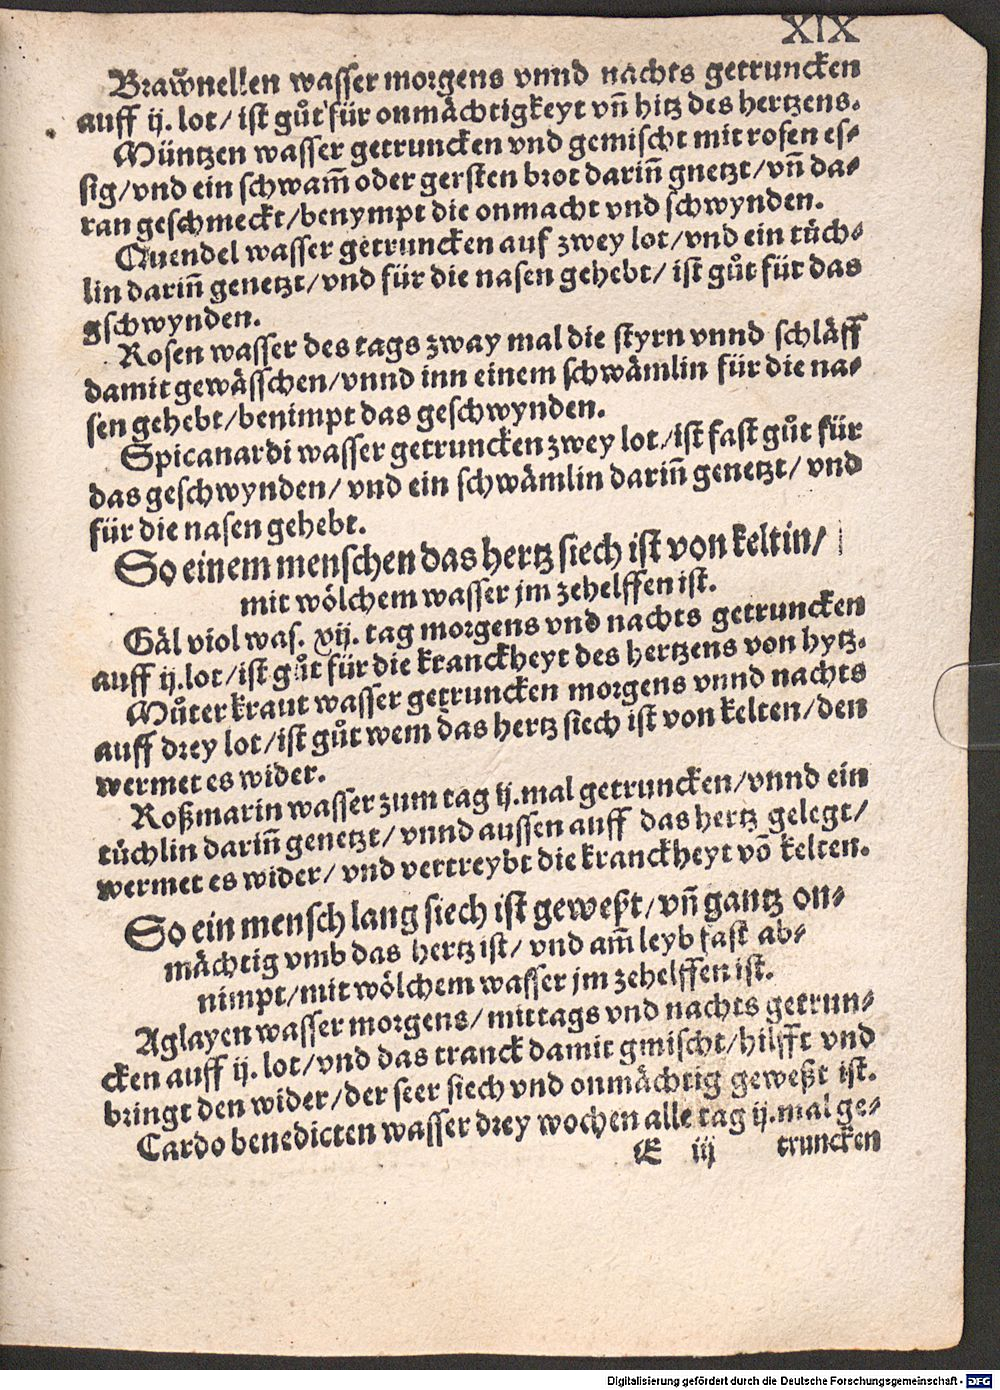 XIX
Brawͤnellen wasser morgens vnnd nachts getruncken
auff ij. lot/ ist guͦt für onmächtigkeyt vñ hitz des hertzens.
Müntzen wasser getruncken vnd gemischt mit rosen es⸗
sig/vnd ein schwam̃ oder gersten brot dariñ gnetzt/vñ da⸗
ran geschmeckt/benympt die onmacht vnd schwynden.
Quendel wasser getruncken auf zwey lot/vnd ein tuͤch⸗
lin dariñ genetzt/vnd für die nasen gehebt/ ist guͦt für das
gschwynden.
Rosen wasser des tags zway mal die styrn vnnd schläff
damit gewässchen/vnnd inn einem schwämlin für die na⸗
sen gehebt/benimpt das geschwynden.
Spicanardi wasser getruncken zwey lot/ist fast guͦt für
das geschwynden/ vnd ein schwämlin dariñ genetzt/ vnd
für die nasen gehebt.
So einem menschen das hertz siech ist von keltin/
mit wölchem wasser jm zehelffen ist.
Gäl viol was. xij. tag morgens vnd nachts getruncken
auff ij.lot/ist guͦt für die kranckheyt des hertzens von hytz.
Muͦter kraut wasser getruncken morgens vnnd nachts
auff drey lot/ist guͦt wem das hertz siech ist von kelten/den
wermet es wider.
Roßmarin wasser zum tag ij.mal getruncken/vnnd ein
tuͤchlin dariñ genetzt/ vnnd aussen auff das hertz gelegt/
wermet es wider/ vnd vertreybt die kranckheyt võ kelten.
So ein mensch lang siech ist geweßt/vñ gantz on⸗
mächtig vmb das hertz ist/ vnd am̃ leyb fast ab⸗
nimpt/mit wölchem wasser jm zehelffen ist.
Aglayen wasser morgens/mittags vnd nachts getrun⸗
cken auff ij. lot/vnd das tranck damit gmischt/hilfft vnd
bringt den wider/der seer siech vnd onmächtig geweßt ist.
Cardo benedicten wasser drey wochen alle tag ij.mal ge⸗
E iij truncken
Digitalisierung gefördert durch die Deutsche Forschungsgemeinschaft - DFG